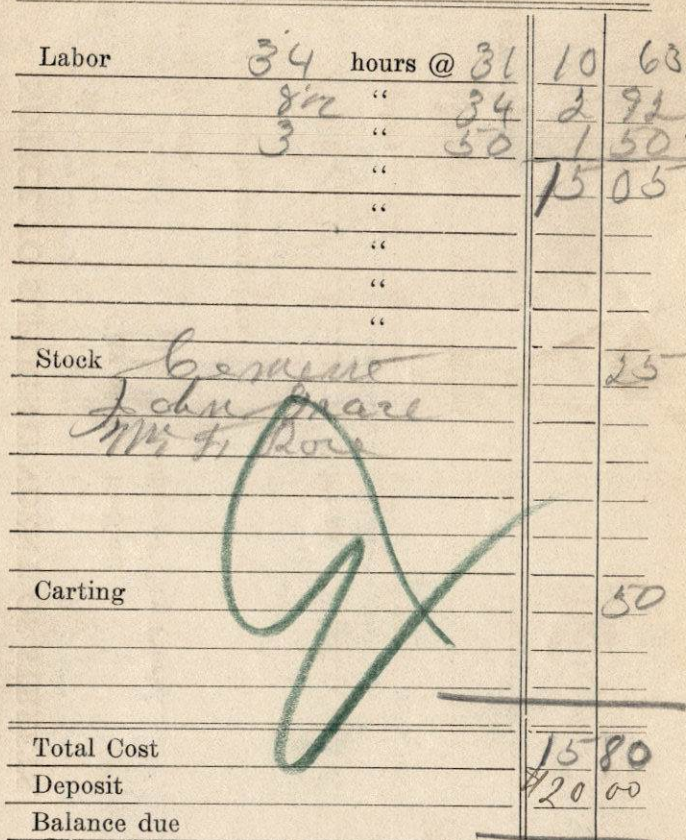 Labor 34 hours @ 31 10 63
8½ " 34 2 92
3 " 50 1 50
" 15 05
"
"
"
"
Stock Cement 25
John
Mr
Carting 50
Total Cost 15 80
Deposit $20 00
Balance due